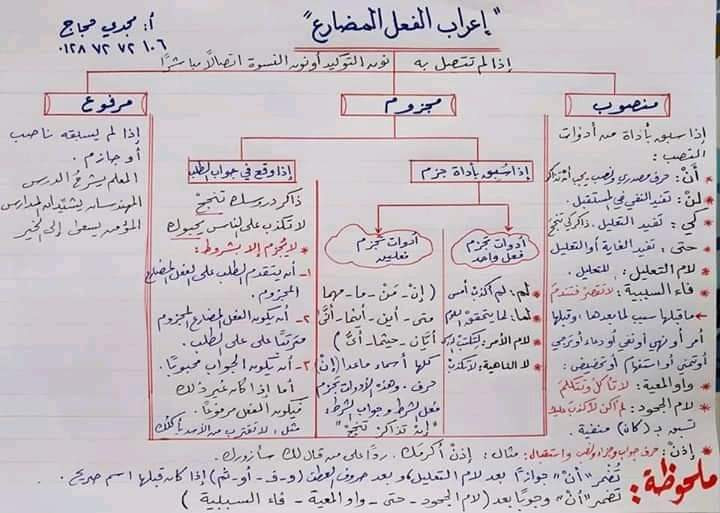 "إعراب الفعل المضارع"
أ: مجدي محاج
٠١٢٨ ٧٢ ٧٢ ١٠٦
إذا لم تتصل به نون التوكيد أو نون النسوة اتصالًا مباشرًا
منصوب
إذا سبق بأداة من أدوات
النصب :
* أنْ: حرف مصدري ونصب يجب أن تذاكر
* لنْ: تفيد النفي في المستقبل.
* كي: تفيد التعليل. ذاكر كي تنجح
* حتى: تفيد الغاية أو التعليل
* لام التعليل: للتعليل.
* فاء السببية: لا تقصر فتندم
← ماقبلها سبب لما بعدها، وقبلها
أمر أو نهي أو نفي أو دعاء أو ترجي
أو تمني أو استفهام أو تحضيض.
* واو المعية: لا تأكل وتتكلم
* لام الجحود: لم أكن لأكذب عليك
تسبق بـ (كان) منفية.
* إذن: حرف جواب وجزاء ونصب واستقبال: مثال: إذنْ أكرمك. ردًا على من قال لك سأزورك.
مجزوم
إذا سُبق بأداة جزم
أدوات تجزم
فعل واحد
* لم: لم أكذب أمس
* لما: لما يتحقق
* لام الأمر: لتكتب
* لا الناهية: لا تكذب
أدوات تجزم
فعلين
(إنْ - مَنْ - ما - مهما
متى - أين - أينما - أنَّى
أيّان - حيثما - أيّ)
كلها أسماء ماعدا (إنْ)
حرف. وهذه الأدوات تجزم
فعل الشرط وجواب الشرط:
"إنْ تذاكرْ تنجحْ"
إذا وقع في جواب الطلب
ذاكر دروسك تنجحْ
لا تكذب على الناس يحبوك
* لا يجزم إلا بشروط:
١- أن يتقدم الطلب على الفعل المضارع
المجزوم.
٢- أن يكون الفعل المضارع المجزوم
مترتبًا على الطلب.
٣- أن يكون الجواب محبوبًا.
أما إذا كان غير ذلك
فيكون الفعل مرفوعًا.
مثل: لا تقترب من الأسد يأكلك
مرفوع
إذا لم يسبقه ناصب
أو جازم.
المعلم يشرحُ الدرس
المهندسان يشيدان المدارس
المؤمن يسعى إلى الخير
ملحوظة:
تُضمر "أنْ" جوازًا بعد لام التعليل، وبعد حروف العطف (و - ف - أو - ثم) إذا كان قبلها اسم صريح.
تضمر "أن" وجوبًا بعد (لام الجحود - حتى - واو المعية - فاء السببية)